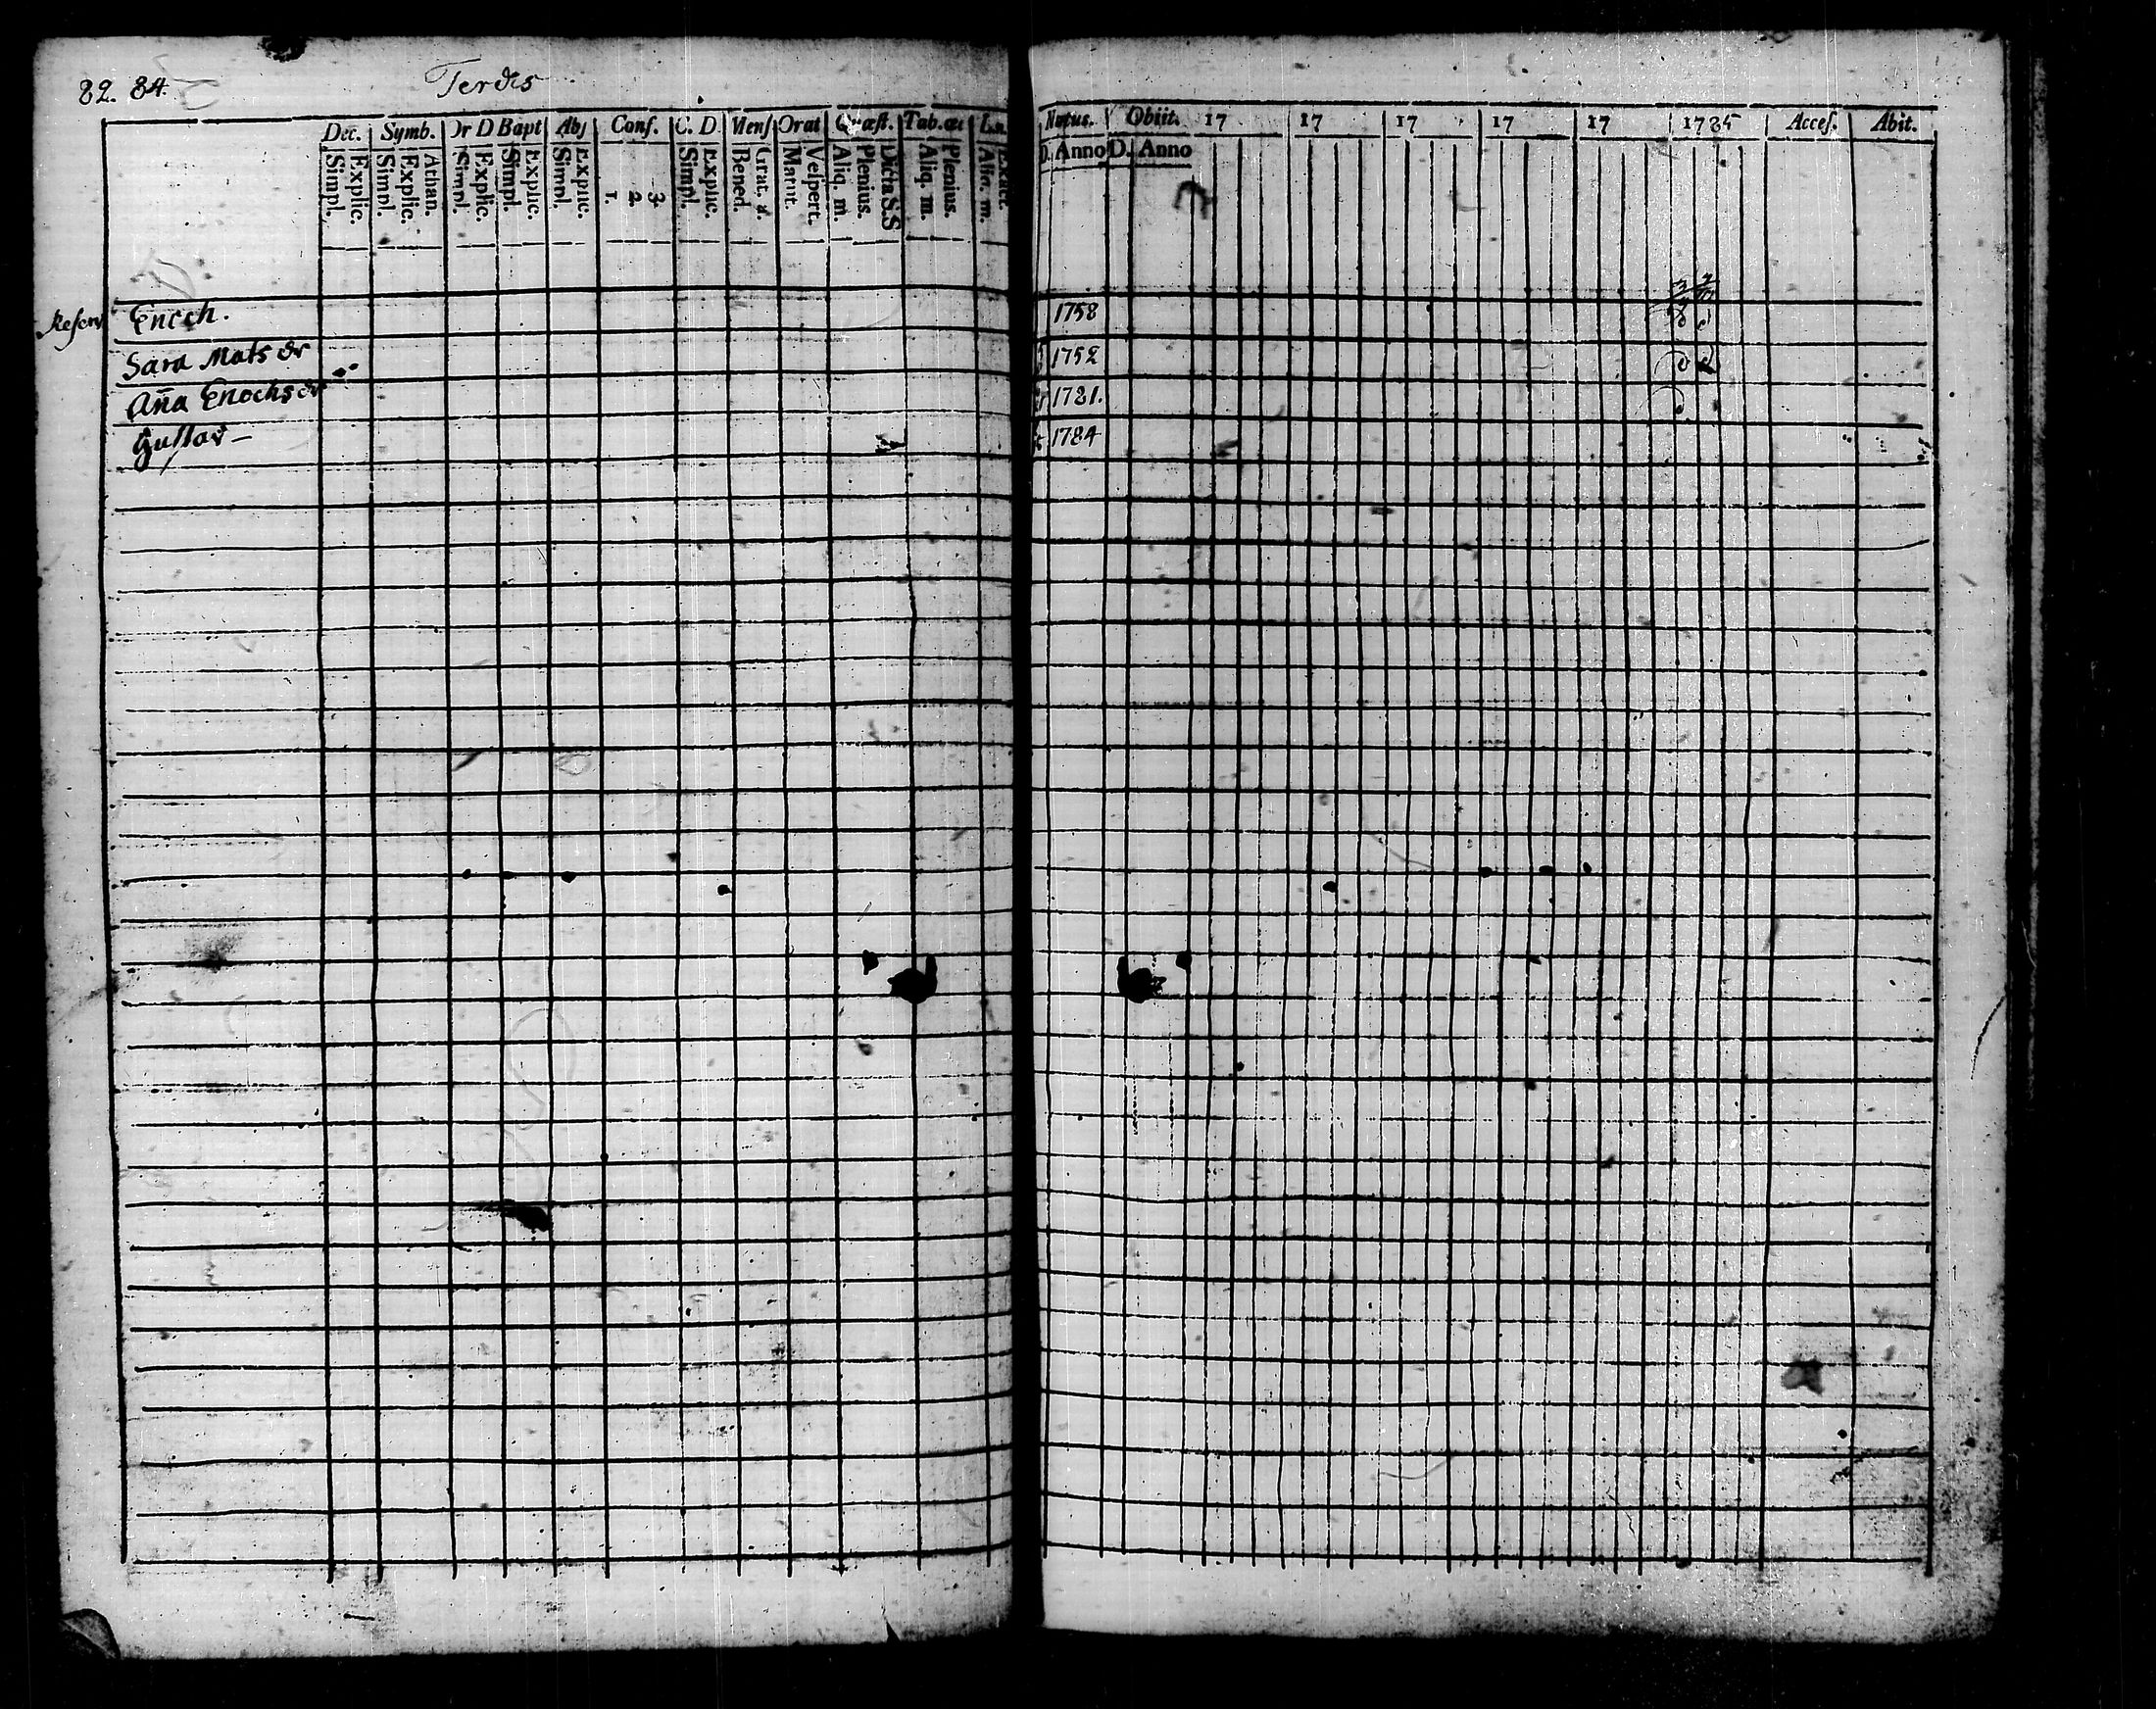 82. 84. Terdes
Dec. Symb. Or D Bapt Abs Conf. C. D. Mens Orat Quæst. Tab. œc Lu.
Simpl. Explic. Simpl. Explic. Athan. Simpl. Explic. Simpl. Explic. Simpl. Explic. 1. 2 3 Simpl. Explic. Bened. Grat. a. Matut. Vespert. Aliq. m. Plenius. Dicta S.S Aliq. m. Plenius. Aliq. m. Exact.
Natus. Obiit. 17 17 17 17 17 1785 Acces. Abit.
D. Anno D. Anno
Enoch. 1758
Sara Mats dr 1752
Aña Enochs dr 1781.
Gustav 1784